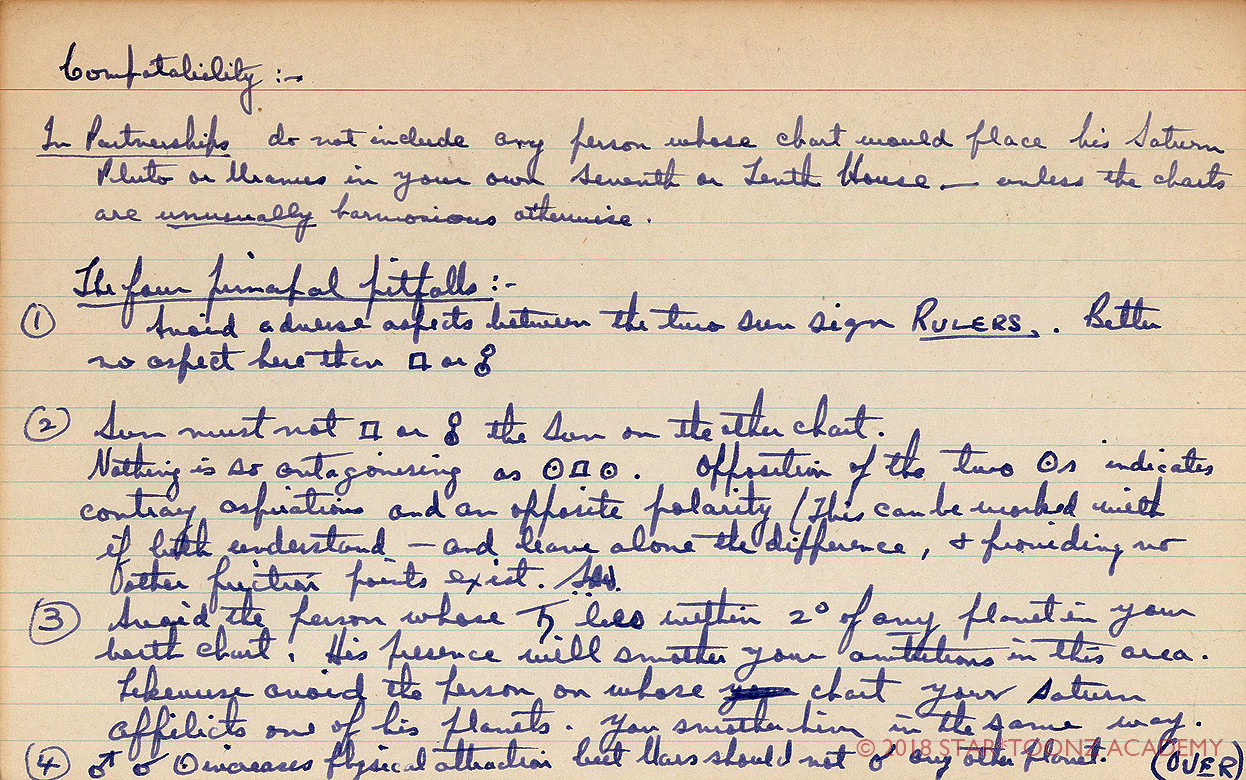 Compatability :-
In Partnerships do not include any person whose chart would place his Saturn
Pluto or Uranus in your own Seventh or Tenth House — unless the charts
are unusually harmonious otherwise.
The four principal pitfalls :-
① Avoid adverse aspects between the two sun sign RULERS. . Better
no aspect here than □ or ☍
② Sun must not □ or ☍ the Sun on the other chart.
Nothing is so antagonising as ☉□☉. Opposition of the two ☉s indicates
contray aspirations and an opposite polarity (This can be worked with
if both understand — and leave alone the difference, & providing no
other friction points exist.
③ Avoid the person whose ♄ lies within 2° of any planet in your
birth chart. His presence will smother your ambitions in this area.
Likewise avoid the person on whose chart your Saturn
afflicts one of his planets. You smother him in the same way.
④ ♂ ☌ ☉ increases physical attraction but Mars should not ☌ any other planet. (OVER)
© 2018 STAR*TOONZ ACADEMY